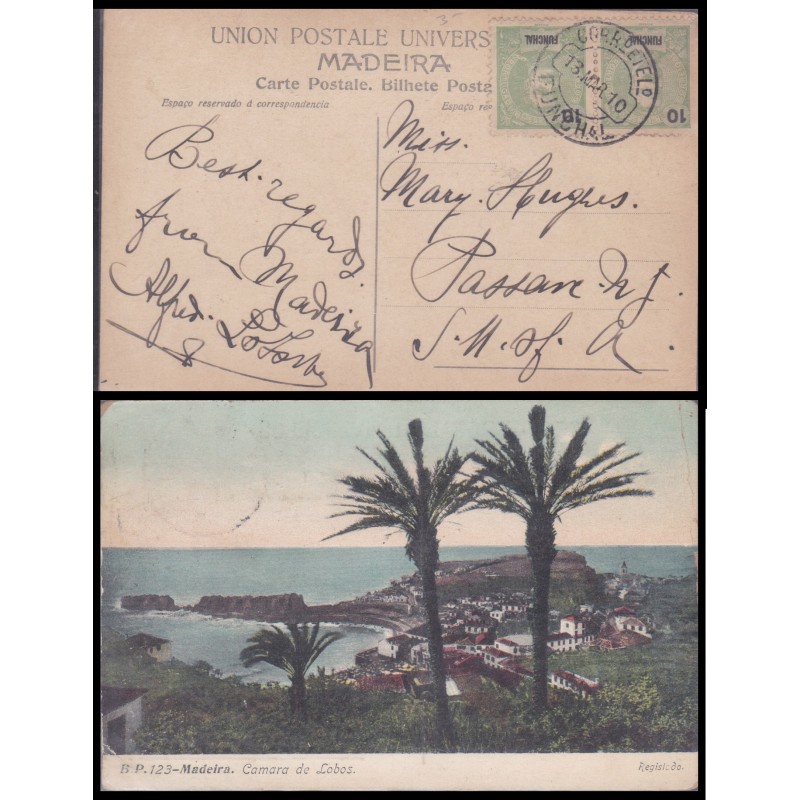 UNION POSTALE UNIVERS
MADEIRA
Carte Postale. Bilhete Posta
Espaço reservado á correspondencia
Espaço re
FUNCHAL
FUNCHAL
10
10
CORREIO E TELO
13 MAR 10
FUNCHAL
Best regards
from Madeira
Alfred.
Miss.
Mary. Hughes.
Passaic N. J.
U. S. of. A.
B P. 123-Madeira. Camara de Lobos.
Registado.